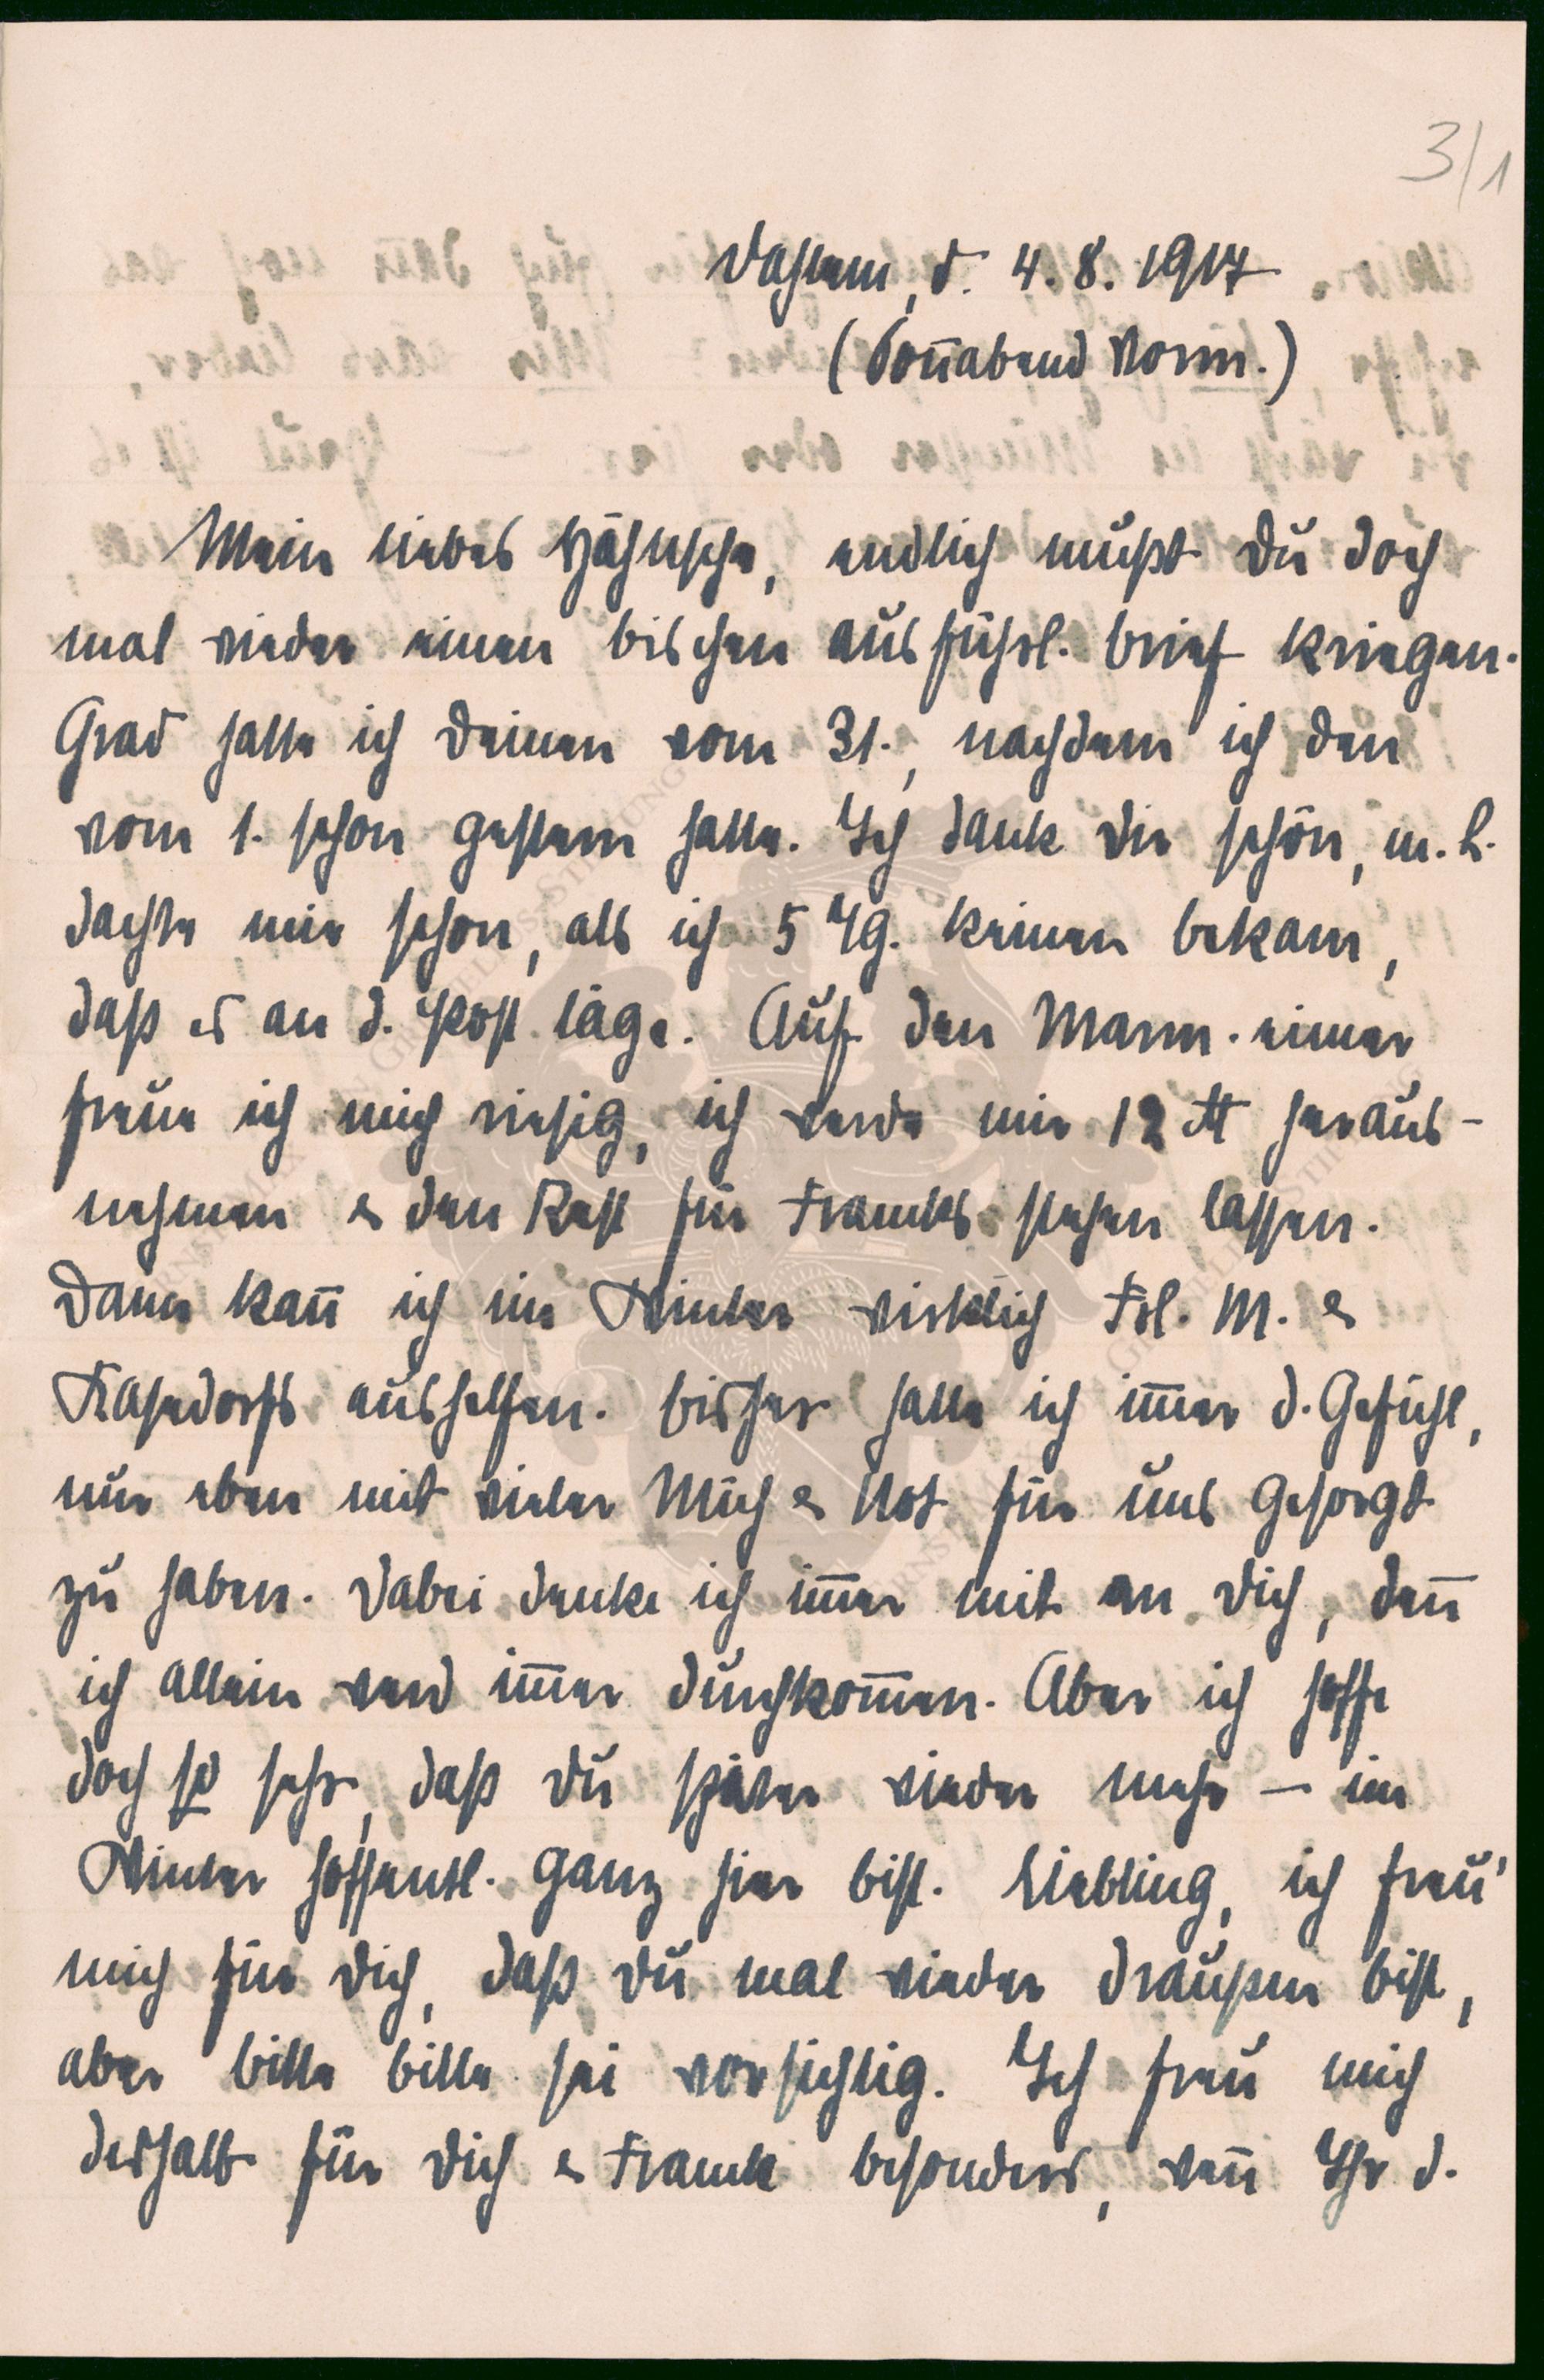 3/1
Dahlem, d. 4. 8. 1917
(Sonnabend Vorm.)
Mein liebes Hähnsche, endlich mußt Du doch
mal wieder einen bischen ausführl. Brief kriegen.
Grad hatte ich Deinen vom 31., nachdem ich den
vom 1. schon gestern hatte. Ich dank Dir schön, m. L.
dachte mir schon, als ich 5 Tg. keinen bekam,
daß es an d. Post läge. Auf den Marm. eimer
freue ich mich riesig, ich werde mir 12 ℔ heraus-
nehmen & den Rest für Francks stehen lassen.
Dann kan̅ ich im Winter wirklich Frl. M. &
aushelfen. Bisher hatte ich im̅er d. Gefühl,
nur eben mit vieler Müh & Not für uns gesorgt
zu haben. Dabei denke ich im̅er mit an Dich, den̅
ich allein werd im̅er durchkom̅en. Aber ich hoffe
doch so sehr, daß Du später wieder mehr – im
Winter hoffentl. ganz hier bist. Liebling, ich freu'
mich für Dich, daß Du mal wieder draußen bist,
aber bitte bitte sei vorsichtig. Ich freu mich
deshalb für Dich & Franck besonders, wen̅ Ihr d.
ERNST-MAX GRELLING-STIFTUNG